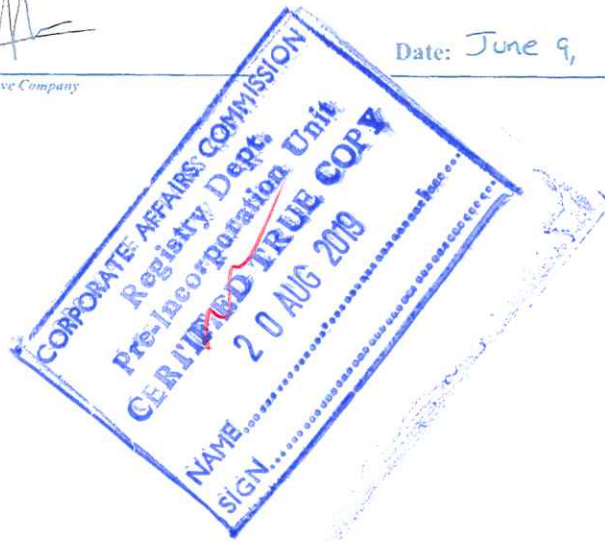 Date: June 9,
ve Company
CORPORATE AFFAIRS COMMISSION
Registry Dept.
Pre-Incorporation Unit
CERTIFIED TRUE COPY
20 AUG 2019
NAME
SIGN